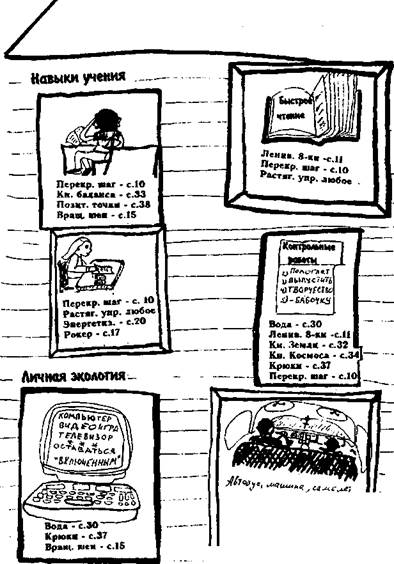 Навыки учения
Перекр. шаг - с.10
Кн. баланса - с.33
Позит. точки - с.38
Вращ. шеи - с.15
Быстрое
чтение
Ленив. 8-ки -с.11
Перекр. шаг - с.10
Растяг. упр. любое
Перекр. шаг - с. 10
Растяг. упр. любое
Энергетиз. - с.20
Рокер - с.17
Контрольные
работы
Помогает
выпустить
творчество
- бабочку
Вода - с.30
Ленив. 8-ки -с.11
Кн. Земли - с.32
Кн. Космоса - с.34
Крюки - с.37
Перекр. шаг - с.10
Личная экология
КОМПЬЮТЕР
ВИДЕОИГРА
ТЕЛЕВИЗОР
ОСТАВАТЬСЯ
"ВКЛЮЧЕННЫМ"
Вода - с.30
Крюки - с.37
Вращ. шеи - с.15
Автобус, машина, самолет